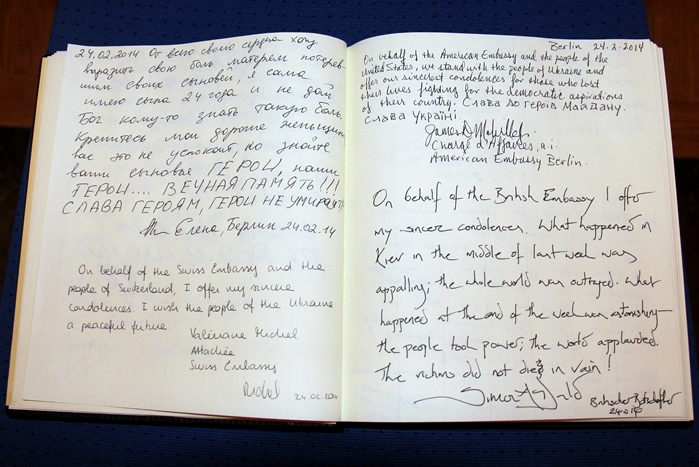 24.02.2014 От всего своего сердца хочу
выразить свою боль матерям потеряв-
шим своих сыновей, я сама
имею сына 24 года и не дай
Бог кому-то знать такую боль.
Крепитесь мои дорогие женщины
вас это не успокоит, но знайте
ваши сыновья ГЕРОИ, наши
ГЕРОИ.... ВЕЧНАЯ ПАМЯТЬ!!!
СЛАВА ГЕРОЯМ, ГЕРОИ НЕ УМИРАЮТ!
Елена, Берлин 24.02.14
On behalf of the Swiss Embassy and the
people of Switzerland, I offer my sincere
condolences. I wish the people of the Ukraine
a peaceful future
Valériane Michel
Attachée
Swiss Embassy
Michel
24.02.2014
Berlin 24.2.2014
On behalf of the American Embassy and the people of the
United States, we stand with the people of Ukraine and
offer our sincerest condolences for those who lost
their lives fighting for the democratic aspirations
of their country. Слава до героїв Майдану.
Слава Україні
Chargé d'Affaires, a.i.
American Embassy Berlin.
On behalf of the British Embassy I offer
my sincere condolences. What happened in
Kiev in the middle of last week was
appalling; the whole world was outraged. What
happened at the end of the week was astonishing -
the people took power; the world applauded.
The victims did not die in vain!
Simon
Britischer Botschafter